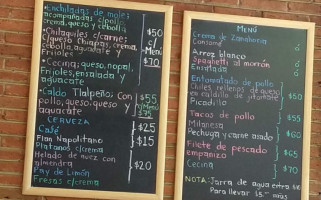 Enchiladas de mole;
acompañadas c/pollo
crema, queso y cebolla $50
Chilaquiles c/carne; c/
queso Chiapas, crema, Menú
cebolla, aguacate y $70
Frijoles
Cecina; queso, nopal,
Frijoles, ensalada y
aguacate
Caldo Tlalpeño; con $55
pollo, queso, queso y c/Menú
aguacate $75
CERVEZA
Café $25
Flan Napolitano
Platano c/crema $15
Helado de nuez con
almendra $20
Pay de Limón
Fresas c/crema
MENÚ
Crema de Zanahoria
Consomé
Arroz blanco
Spaghetti al morrón
Ensalada
Entomatado de pollo
Chiles rellenos de queso
en caldillo de jitomate $50
Picadillo
Tacos de pollo $55
Milanesa
Pechuga y carne asada $60
Filete de pescado $65
empanizo
Cecina $70
NOTA: Jarra de agua extra $10
Para llevar